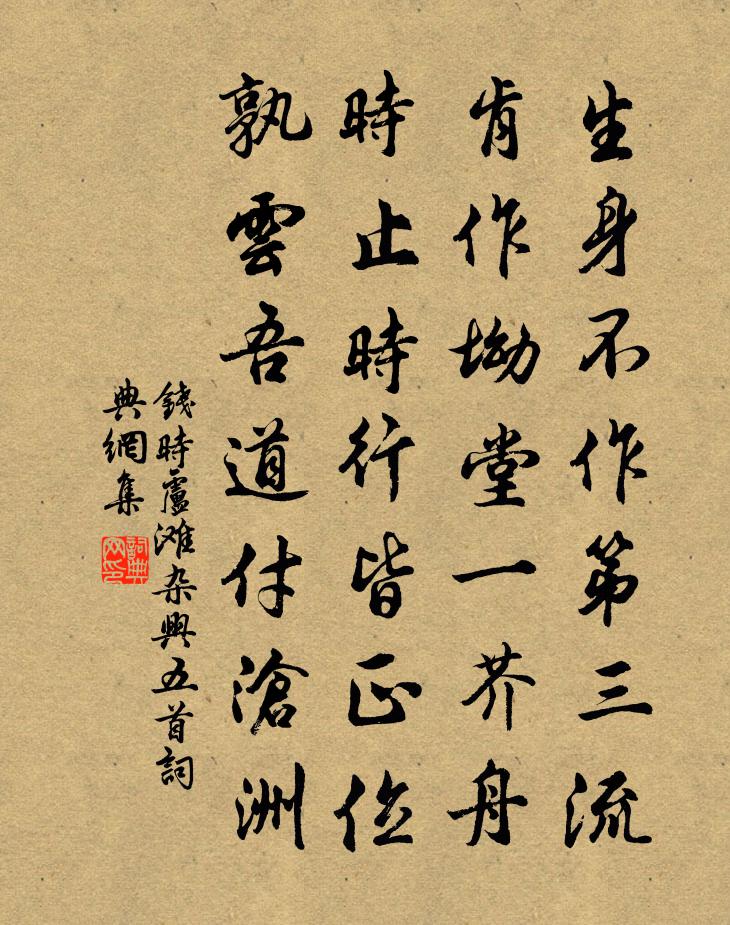 生身不作第三流
肯作坳堂一芥舟
時止時行皆正位
孰雲吾道付滄洲
錢時盧滩杂興五首詞
典網集
詞典网印